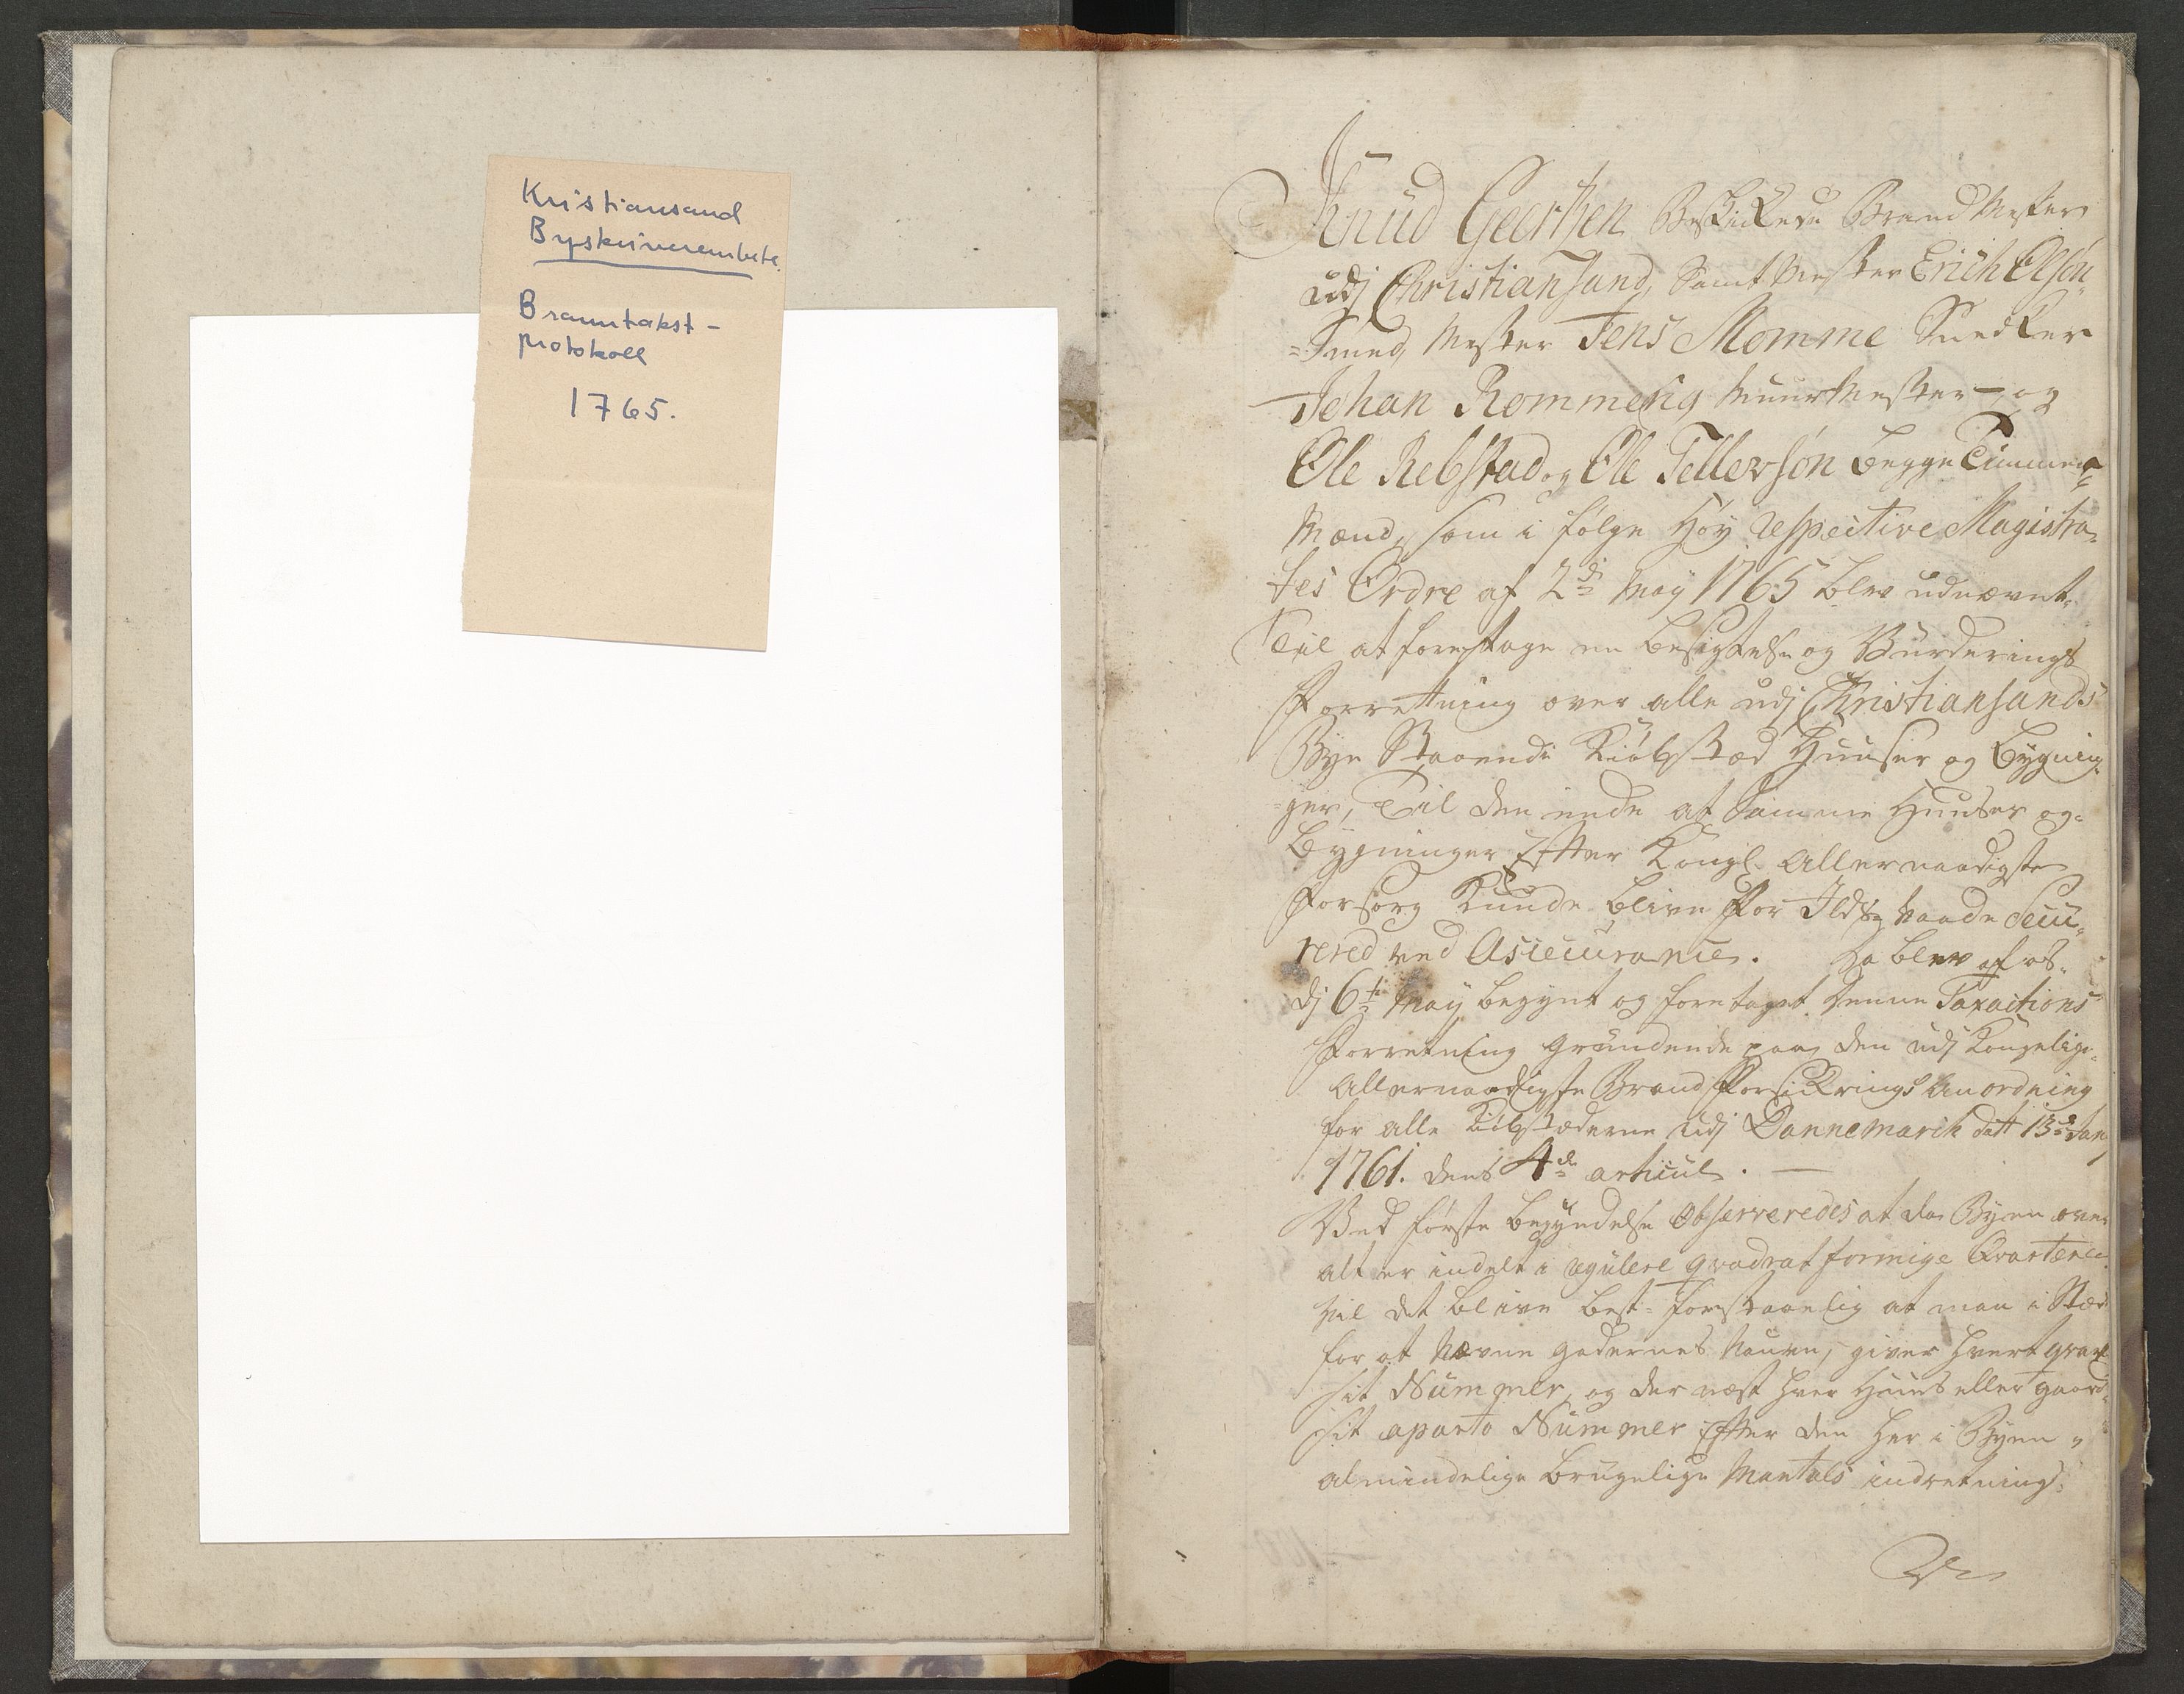 Kristiansand
Byskriverembete.
Branntakst-
protokoll
1765.
Knud Geertsen Beskikede Brand Mester
udj Christiansand, Samt Mester Erich Olsøn
=Smed, Mester Jens Momme Snedker
Johan Rommerig Muur Mester og
Ole Rebstad og Ole Tellevsøn begge Timmer=
Mænd, som i følge Høy respective Magistra-
tes Ordre af 2de May 1765 blev udnævnt
Til at foretage en besigtelse og Vurderings
Forretning over alle udj Christiansands
Bye Staaende Kiøbstæd Huuser og bygnin-
ger, Til den ende at Samme Huuser og
bygninger Efter Kongl. Allernaadigste
Forsorg Kunde blive for Ilds Vaade Secu-
rered ved Assecurance. Da blev af os
dj 6te May begynt og foretaget denne Taxactions
Forretning grundende paa den udj Kongelig
Allernaadigste Brand Forsikrings Anordning
for alle Kiøbstæderne udj Dannemarck datt 13de Jan
1761. dens 4de articul. —
Ved første begyndelse Observeredes at da Byen over
alt er indelt i regulere qvadrat formige Qvartere
vil det blive best forstaaelig at man i Stæd
for at Nævne gadernes Nauvn, giver hvert qvart
sit Nummer, og der næst hver Huus eller gaard
sit aparto Nummer Efter den her i Byen
almindelige brugelige Mantals indretning.